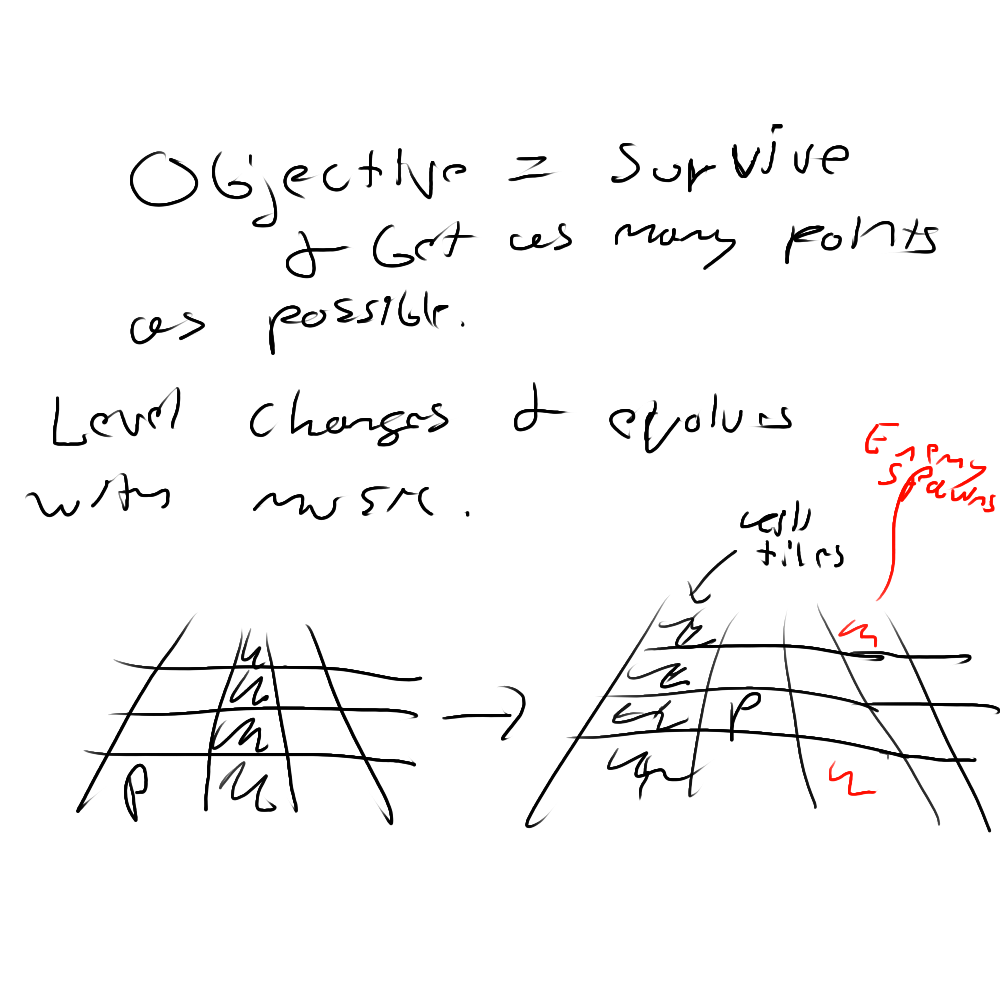 Objective = Survive
& Get as many points
as possible.
Level changes & evolves
with music.
Enemy
spawns
tiles
P
P